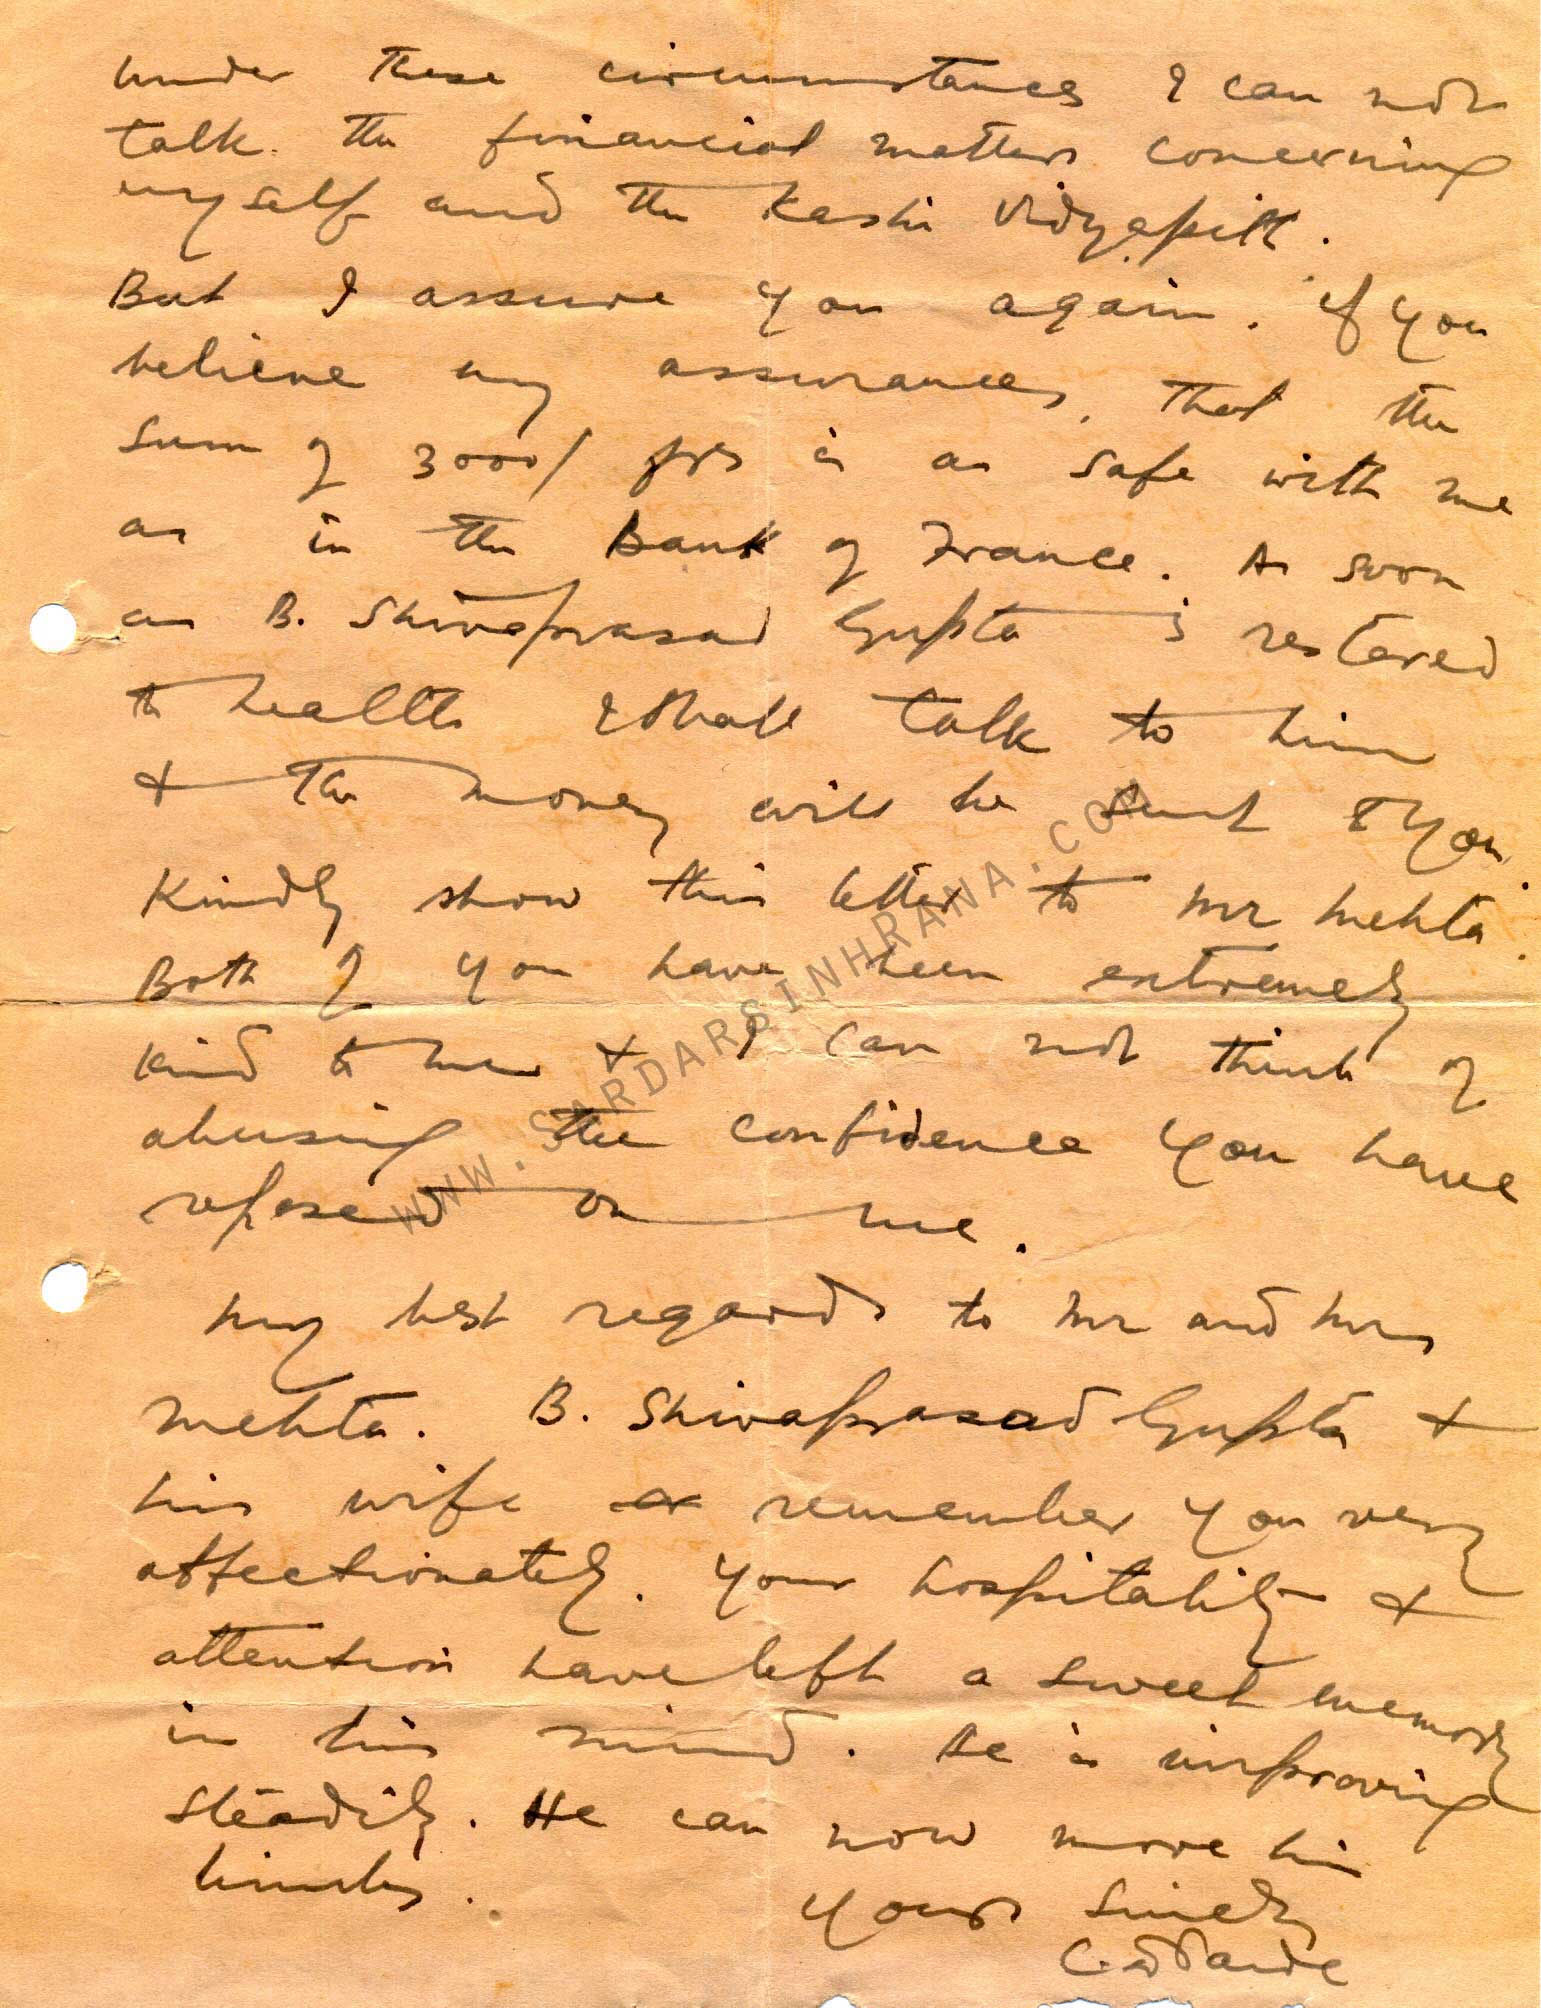 under these circumstances I can not
talk the financial matters concerning
myself and the Kashi Vidyapith.
But I assure you again. if you
believe my assurances, that the
sum of 3000/ frs is as safe with me
as in the Bank of France. As soon
as B. Shivaprasad Gupta is restored
to health I shall talk to him
& the money will be sent to you
Kindly show this letter to Mr Mehta.
Both of you have been extremely
kind to me & I can not think of
abusing the confidence you have
reposed on me.
My best regards to Mr and Mrs
Mehta. B. Shivaprasad Gupta &
his wife remember you very
affectionately. Your hospitality &
attention have left a sweet memory
in his mind. He is improving
steadily. He can now move his
limbs.
Yours
WWW.SARDARSINHRANA.COM